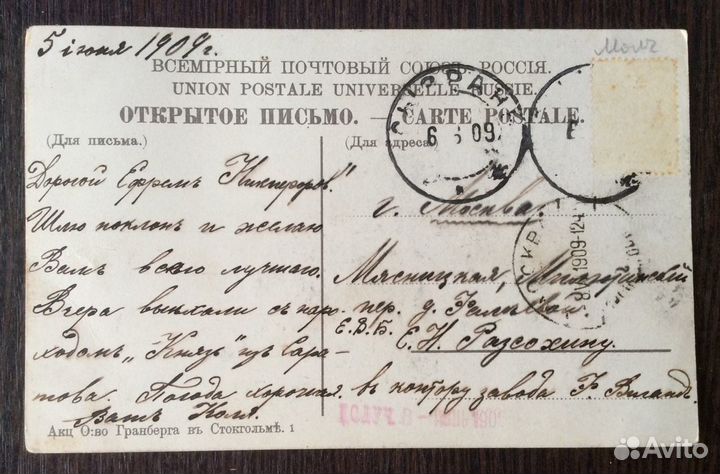 5 іюня 1909 г.
Молч
ВСЕМІРНЫЙ ПОЧТОВЫЙ СОЮЗЪ. РОССІЯ.
UNION POSTALE UNIVERSELLE. RUSSIE.
ОТКРЫТОЕ ПИСЬМО. — CARTE POSTALE.
(Для письма.)
(Для адреса.)
СЫЗРАНЬ
6 6 09
Дорогой Ефремъ Никифоров."
Шлю поклонъ и желаю
Вамъ всего лучшаго.
Вчера выехали съ паро-
ходомъ „Князь" изъ Сара-
това. Погода хорошая.
Вашъ Коля.
г. Москва.
Мясницкая, Милютинскій
пер. д.
Е.В.Б.
Е. Н. Разсохину.
въ контору завода Ф. Виганд
1909-12
Акц О:во Гранберга въ Стокгольмѣ. 1
Avito